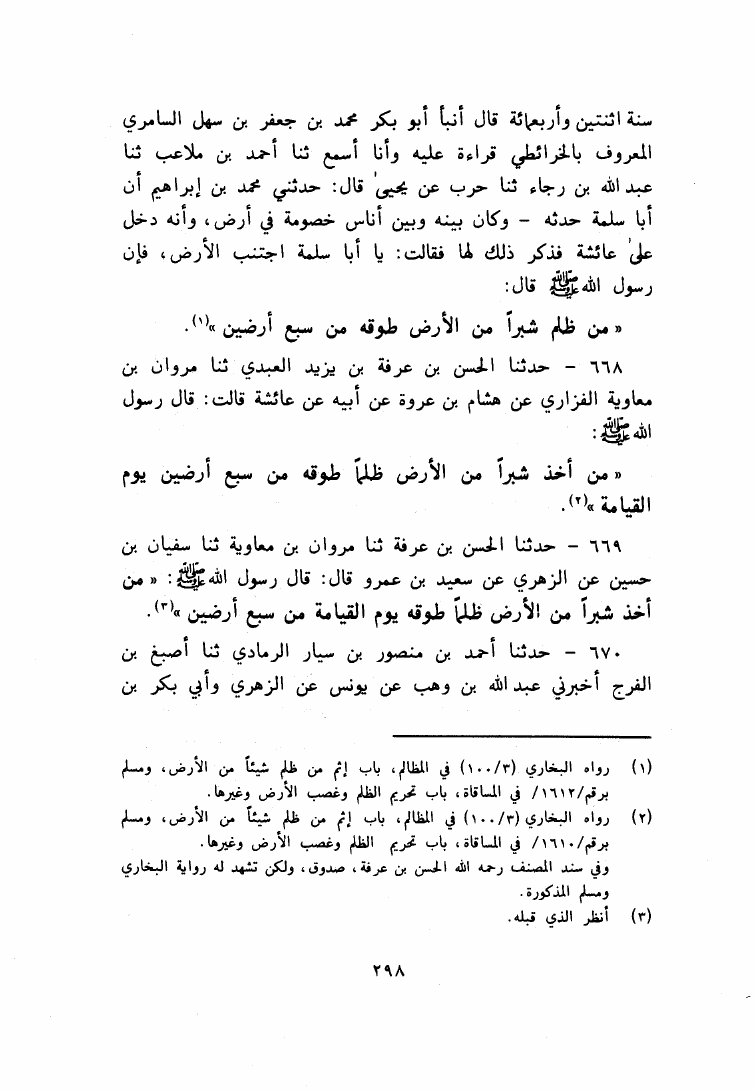 سنة اثنتين وأربعمائة قال أنبأ أبو بكر محمد بن جعفر بن سهل السامري
المعروف بالخرائطي قراءة عليه وأنا أسمع ثنا أحمد بن ملاعب ثنا
عبد الله بن رجاء ثنا حرب عن يحيىٰ قال: حدثني محمد بن إبراهيم أن
أبا سلمة حدثه – وكان بينه وبين أناس خصومة في أرض، وأنه دخل
علىٰ عائشة فذكر ذلك لها فقالت: يا أبا سلمة اجتنب الأرض، فإن
رسول الله ﷺ قال:
« من ظلم شبراً من الأرض طوقه من سبع أرضين »(١).
٦٦٨ – حدثنا الحسن بن عرفة بن يزيد العبدي ثنا مروان بن
معاوية الفزاري عن هشام بن عروة عن أبيه عن عائشة قالت: قال رسول
الله ﷺ:
« من أخذ شبراً من الأرض ظلماً طوقه من سبع أرضين يوم
القيامة »(٢).
٦٦٩ – حدثنا الحسن بن عرفة ثنا مروان بن معاوية ثنا سفيان بن
حسين عن الزهري عن سعيد بن عمرو قال: قال رسول الله ﷺ: « من
أخذ شبراً من الأرض ظلماً طوقه يوم القيامة من سبع أرضين »(٣).
٦٧٠ – حدثنا أحمد بن منصور بن سيار الرمادي ثنا أصبغ بن
الفرج أخبرني عبد الله بن وهب عن يونس عن الزهري وأبي بكر بن
(١) رواه البخاري (١٠٠/٣) في المظالم، باب إثم من ظلم شيئاً من الأرض، ومسلم
برقم/١٦١٢/ في المساقاة، باب تحريم الظلم وغصب الأرض وغيرها.
(٢) رواه البخاري (١٠٠/٣) في المظالم، باب إثم من ظلم شيئاً من الأرض، ومسلم
برقم/١٦١٠/ في المساقاة، باب تحريم الظلم وغصب الأرض وغيرها.
وفي سند المصنف رحمه الله الحسن بن عرفة، صدوق، ولكن تشهد له رواية البخاري
ومسلم المذكورة.
(٣) أنظر الذي قبله.
٢٩٨